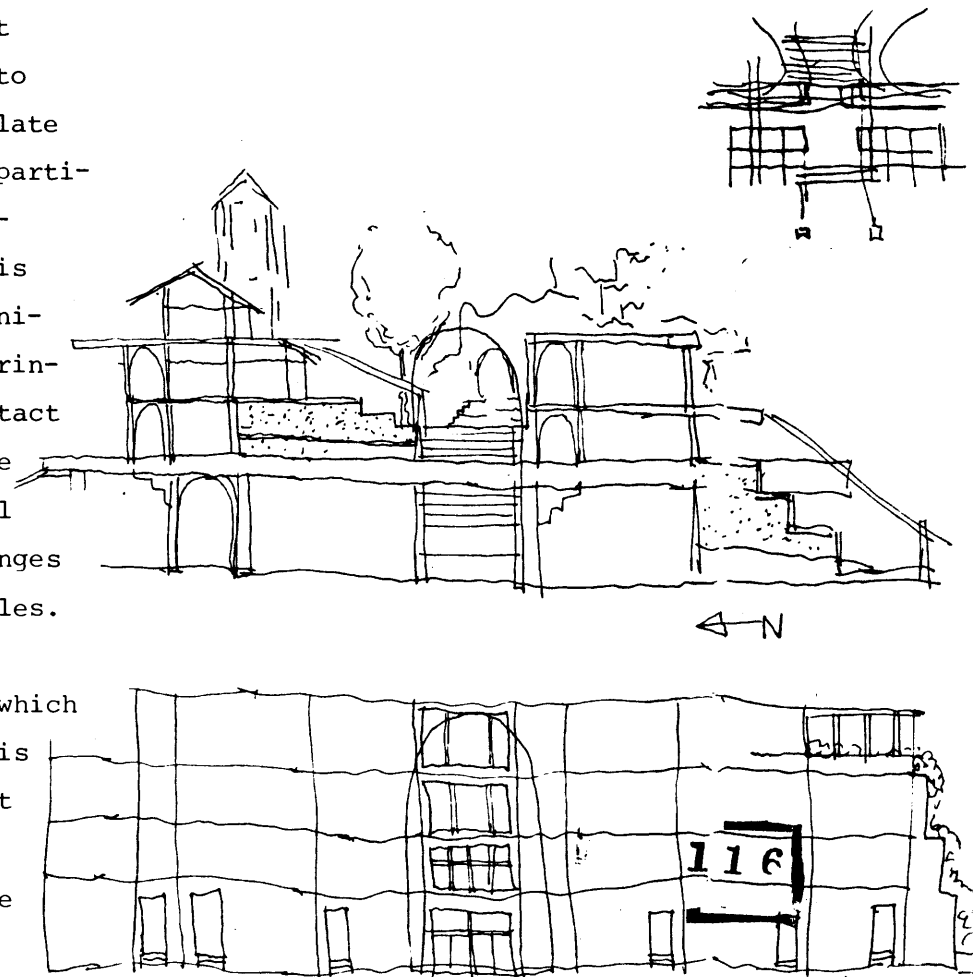 t
to
late
parti-
-
is
ni-
rin-
tact
e
l
nges
les.
N
which
is
t
116
e